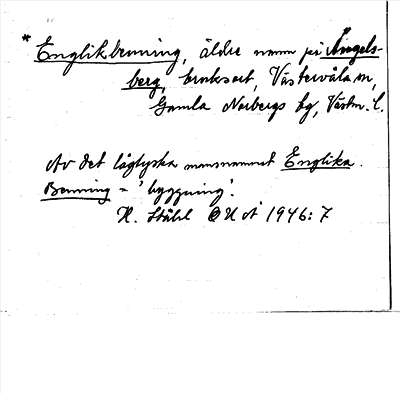 * Englikbenning, äldre namn på Ängels-
berg, bruksort, Västervåla sn,
Gamla Norbergs bg, Västm. l.
Av det lågtyska mansnamnet Englika.
Benning = 'byggning'.
H. Ståhl OUÅ 1946:7